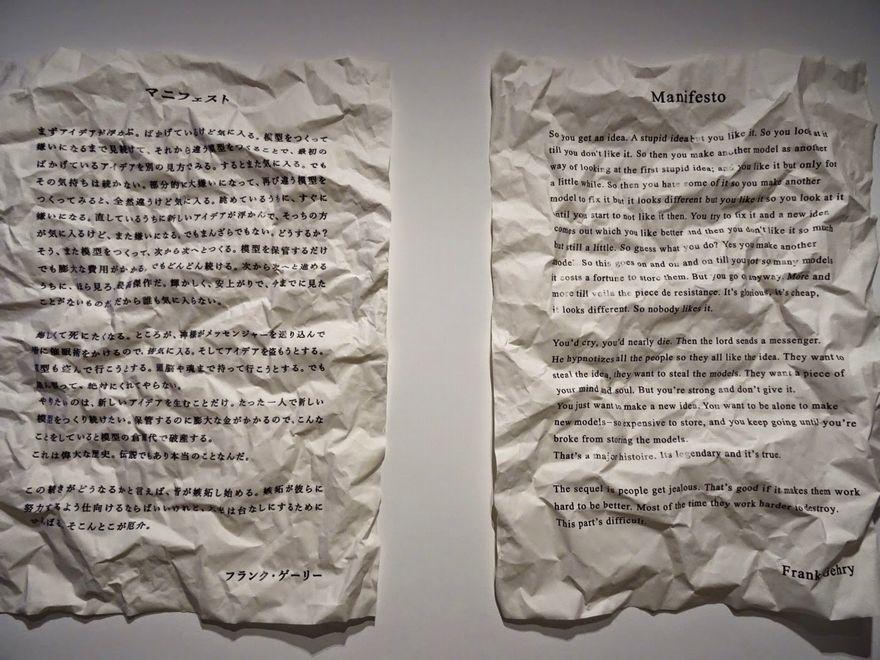 マニフェスト
まずアイデアが浮かぶ。ばかげているけど気に入る。模型をつくって
嫌いになるまで見続けて、それから違う模型をつくることで、最初の
ばかげているアイデアを別の見方でみる。するとまた気に入る。でも
その気持ちは続かない。部分的に大嫌いになって、再び違う模型を
つくってみると、全然違うけど気に入る。眺めているうちに、すぐに
嫌いになる。直しているうちに新しいアイデアが浮かんで、そっちの方
が気に入るけど、また嫌いになる。でもまんざらでもない。どうするか?
そう、また模型をつくって、次から次へとつくる。模型を保管するだけ
でも膨大な費用がかかる。でもどんどん続ける。次から次へと進める
うちに、ほら見ろ、最高傑作だ。輝かしく、安上がりで、今までに見た
ことがないものだから誰も気に入らない。
悔しくて死にたくなる。ところが、神様がメッセンジャーを送り込んで
に催眠術をかけるので、皆気に入る。そしてアイデアを盗もうとする。
模型も盗んで行こうとする。頭脳や魂まで持って行こうとする。でも
って、絶対にくれてやらない。
やりたいのは、新しいアイデアを生むことだけ。たった一人で新しい
模型をつくり続けたい。保管するのに膨大な金がかかるので、こんな
ことをしていると模型の倉庫代で破産する。
これは偉大な歴史。伝説でもあり本当のことなんだ。
この続きがどうなるかと言えば、皆が嫉妬し始める。嫉妬が彼らに
努力するよう仕向けるならばいいけれど、大抵は台なしにするために
がんばる。そこんとこが厄介。
フランク・ゲーリー
Manifesto
So you get an idea. A stupid idea but you like it. So you look at it
till you don't like it. So then you make another model as another
way of looking at the first stupid idea; and you like it but only for
a little while. So then you hate some of it so you make another
model to fix it but it looks different but you like it so you look at it
until you start to not like it then. You try to fix it and a new idea
comes out which you like better and then you don't like it so much
but still a little. So guess what you do? Yes you make another
model. So this goes on and on and on till you got so many models
it costs a fortune to store them. But you go on anyway. More and
more till voila the piece de resistance. It's glorious, it's cheap,
it looks different. So nobody likes it.
You'd cry, you'd nearly die. Then the lord sends a messenger.
He hypnotizes all the people so they all like the idea. They want to
steal the idea, they want to steal the models. They want a piece of
your mind and soul. But you're strong and don't give it.
You just want to make a new idea. You want to be alone to make
new models—so expensive to store, and you keep going until you're
broke from storing the models.
That's a major histoire. Its legendary and it's true.
The sequel is people get jealous. That's good if it makes them work
hard to be better. Most of the time they work harder to destroy.
This part's difficult.
Frank Gehry